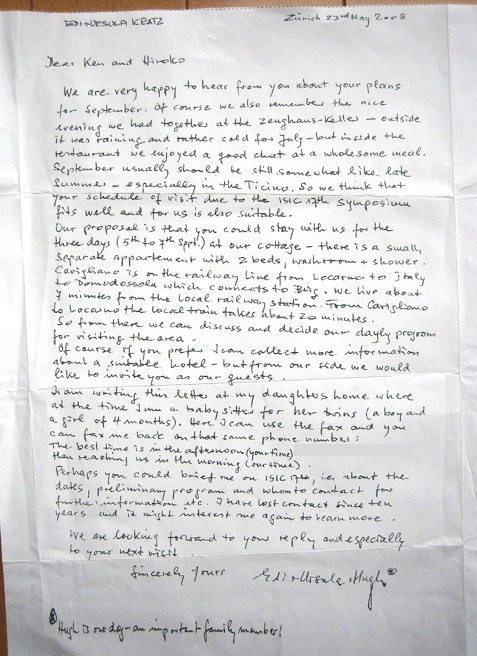 EDI + URSULA KRATZ Zürich 23rd May 2008
Dear Ken and Hiroko
We are very happy to hear from you about your plans
for September. Of course we also remember the nice
evening we had together at the Zeughaus-Keller – outside
it was raining and rather cold for July – but inside the
restaurant we enjoyed a good chat at a wholesome meal.
September usually should be still somewhat like late
Summer – especially in the Ticino. So we think that
your schedule of visit due to the ISIC 17th Symposium
fits well and for us is also suitable.
Our proposal is that you could stay with us for the
three days (5th to 7th Sept.) at our cottage – there is a small,
separate appartement with 2 beds, washroom + shower.
Cavigliano is on the railway line from Locarno to Italy
to Domodossola which connects to Brig. We live about
7 minutes from the local railway station. From Cavigliano
to Locarno the local train takes about 20 minutes.
So from there we can discuss and decide our dayly program
for visiting the area.
Of course if you prefer I can collect more information
about a suitable hotel – but from our side we would
like to invite you as our guests.
I am writing this letter at my daughters home where
at the time I am a babysitter for her twins (a boy and
a girl of 4 months). Here I can use the fax and you
can fax me back on that same phone number:
The best time is in the afternoon (your time)
then reaching us in the morning (our time).
Perhaps you could brief me on ISIC 17th, i.e. about the
dates, preliminary program and whom to contact for
further information etc. I have lost contact since ten
years and it might interest me again to learn more.
We are looking forward to your reply and especially
to your next visit
Sincerely Yours Edi + Ursula, Hugh*
* Hugh is our dog – an important family member!